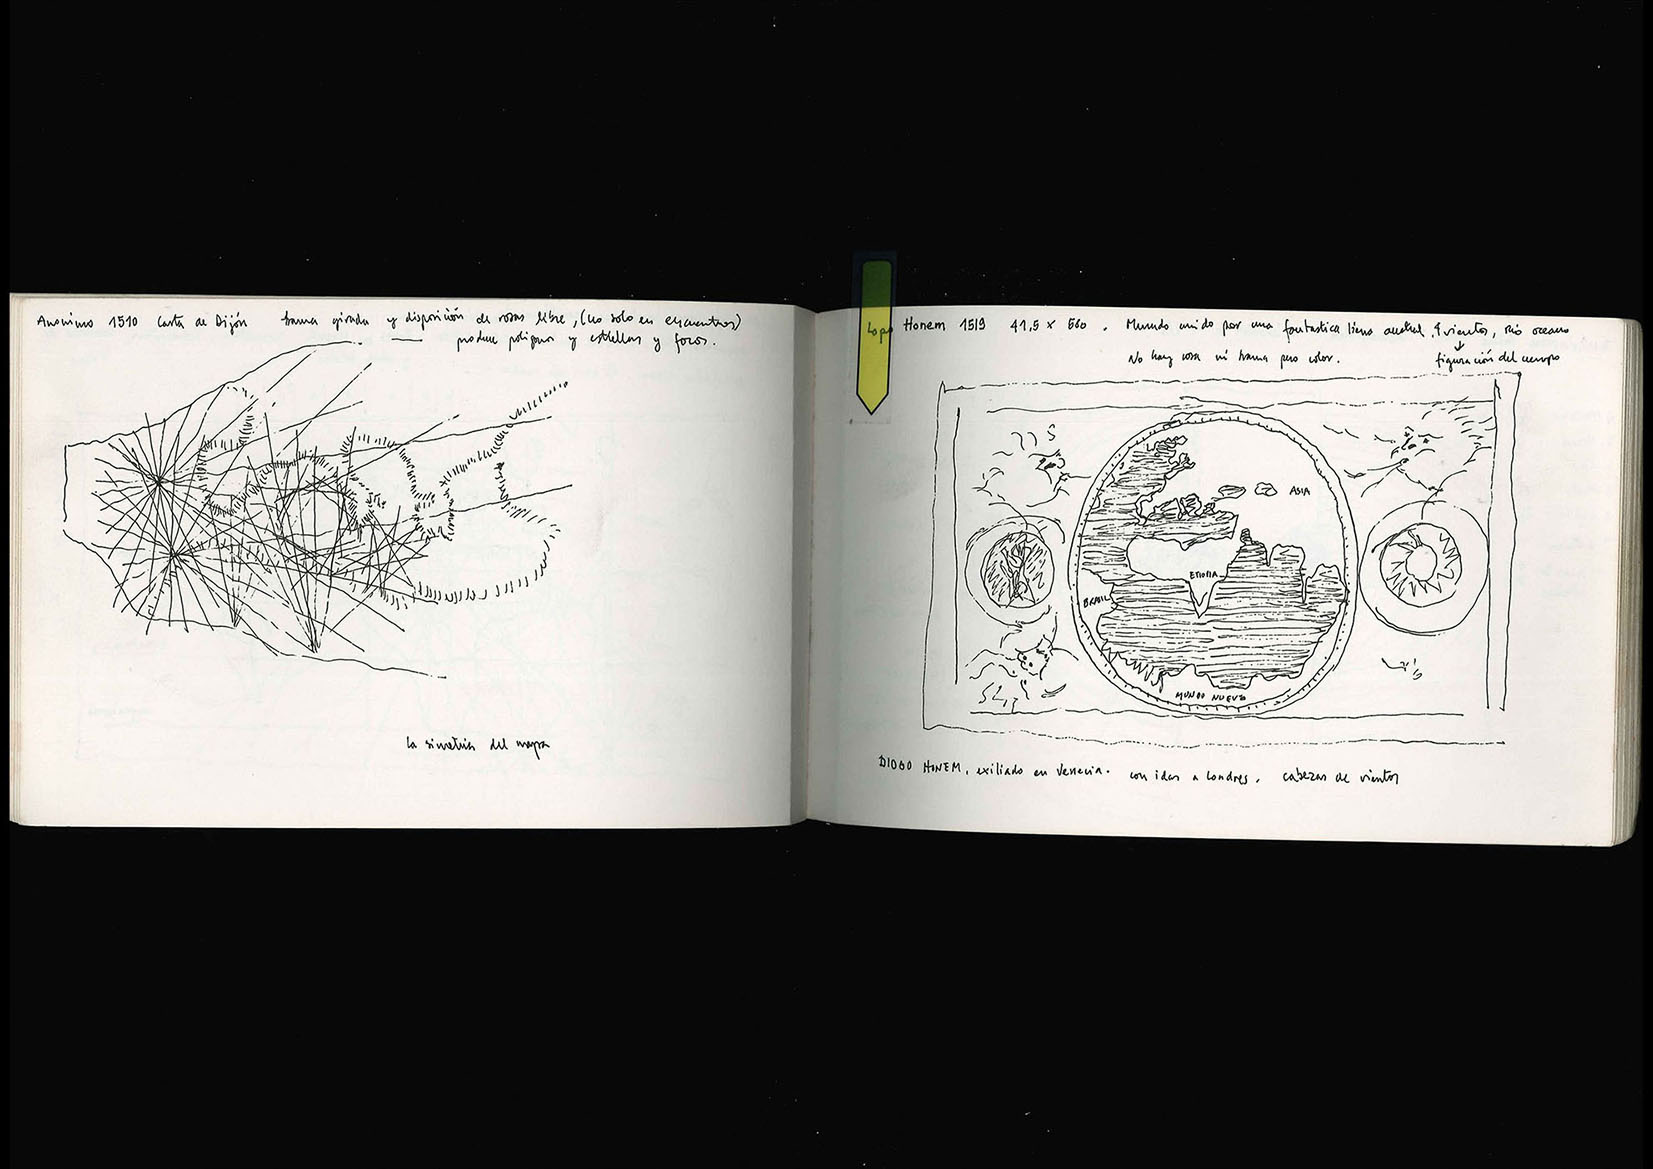 Anonimo 1510 Carta de Dijón trama girada y disposición de rosas libre, (no solo en encuentros)
produce poligonos y estrellas y focos.
la simetria del mapa
Lopo Honem 1519 41,5 x 560 . Mundo unido por una fantastica tierra austral . 4 vientos, rio oceano
No hay rosa ni trama pero color.
figuración del cuerpo
ASIA
ETIOPIA
BRASIL
MUNDO NUEVO
DIOGO HONEM, exiliado en Venecia. con idas a Londres. cabezas de vientos